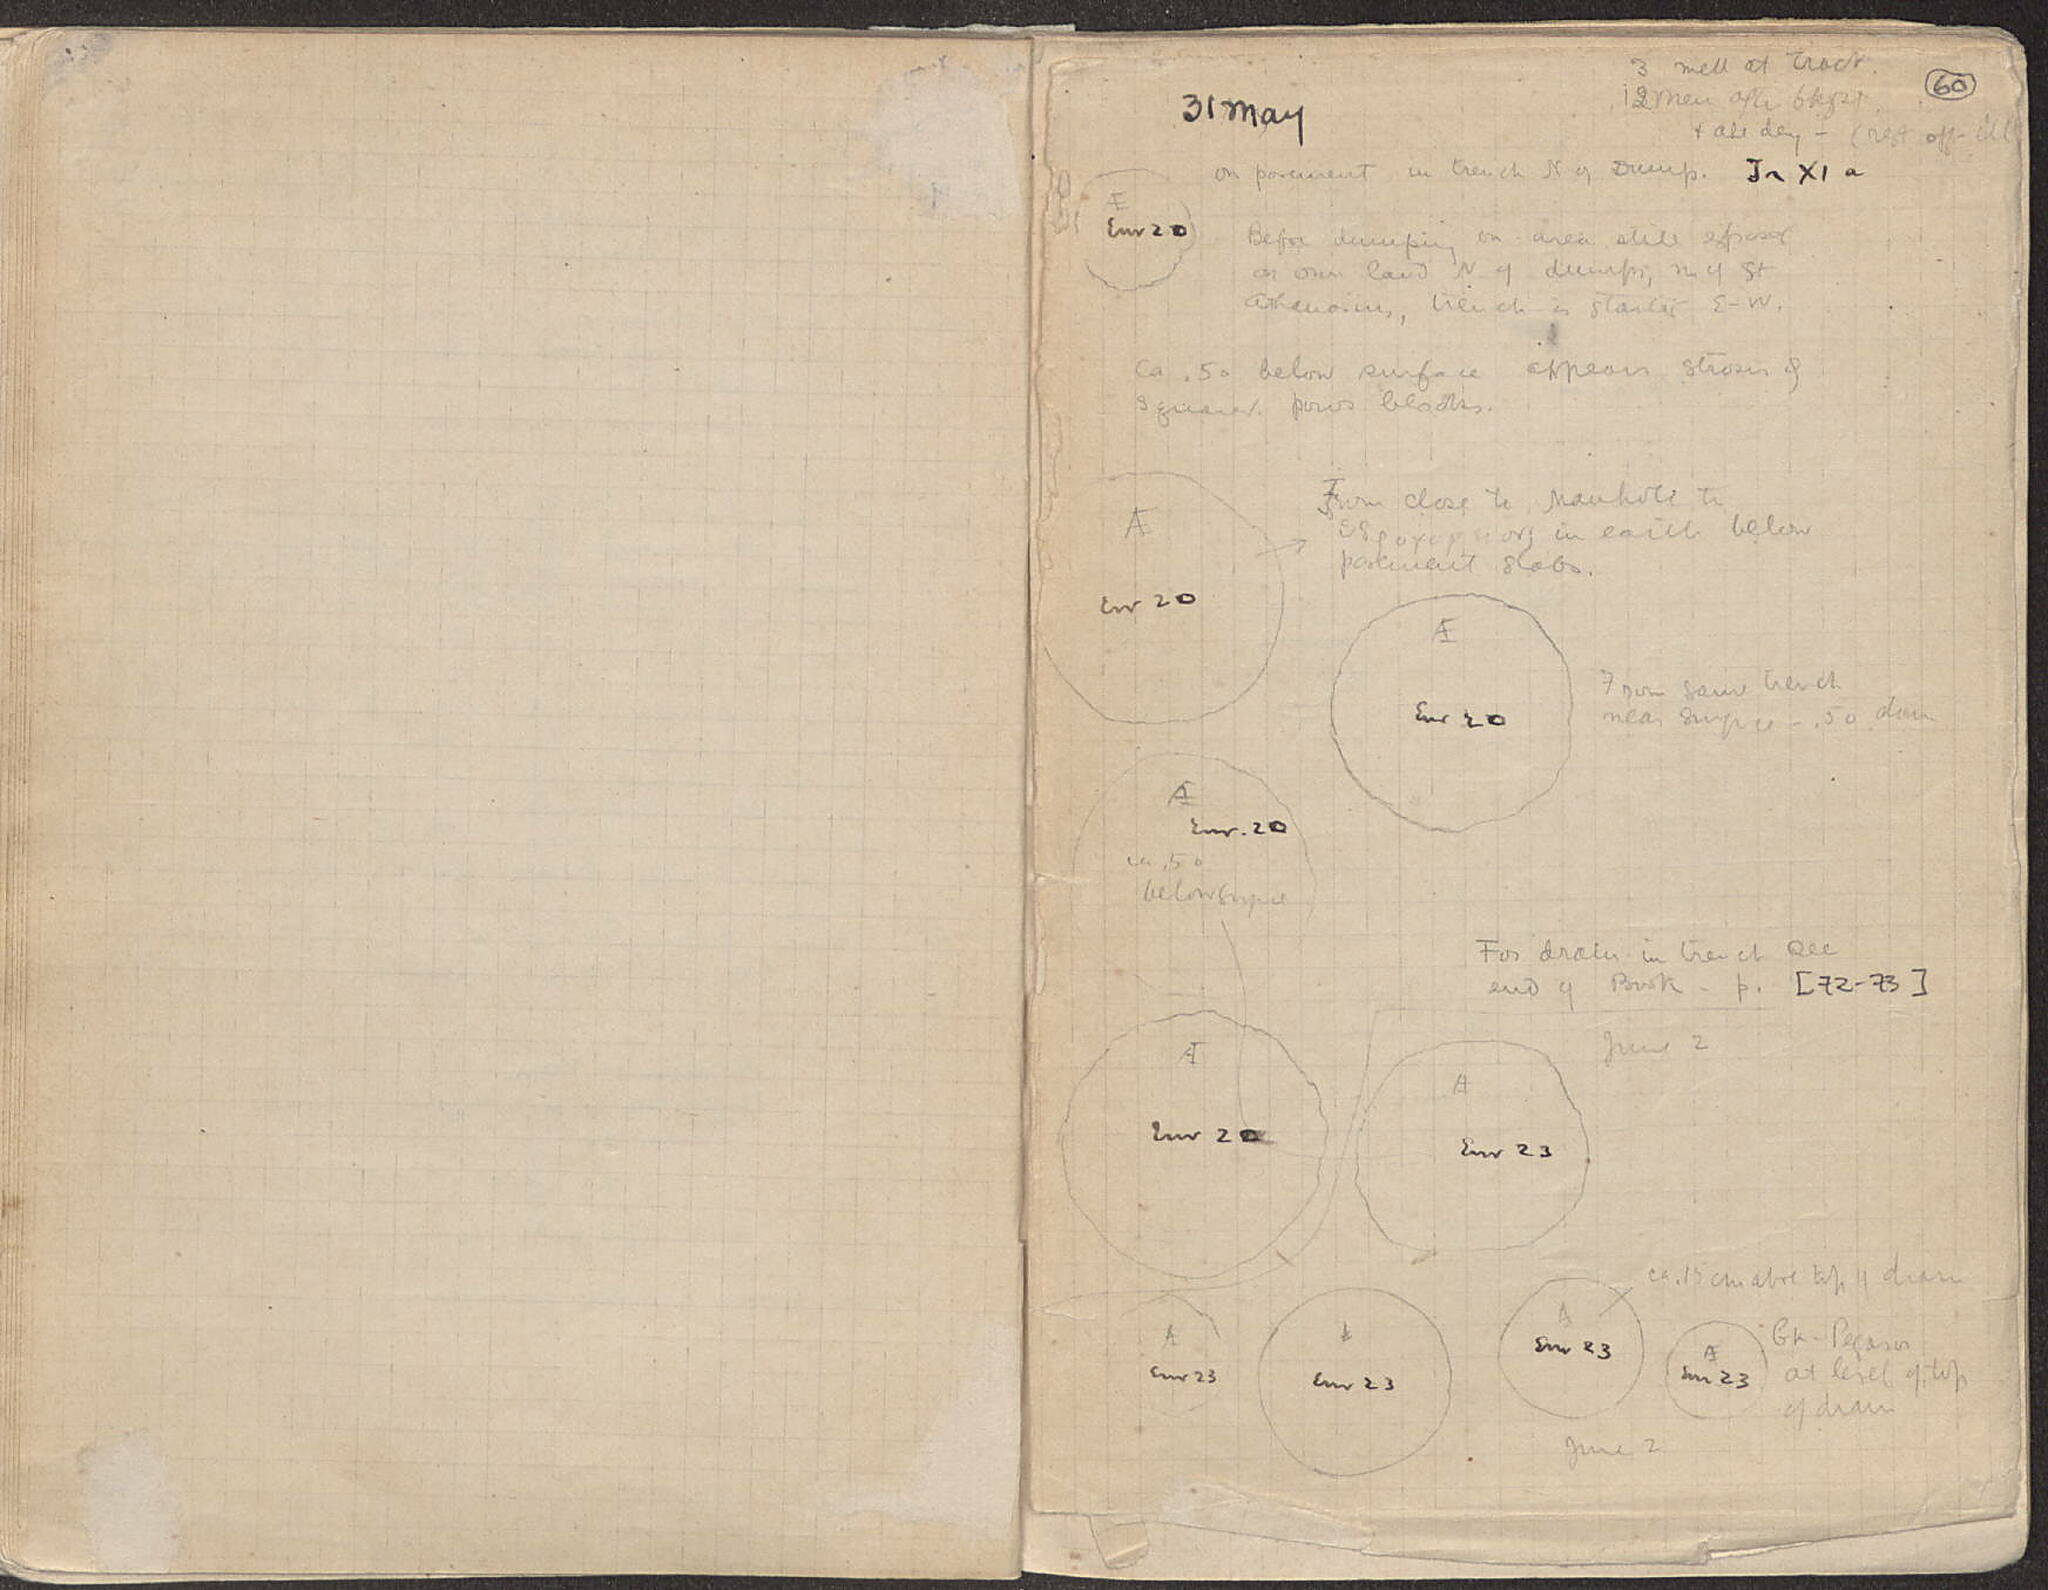 3 men at track.
60
12 men after bkfst
+ all day - (rest off - ill)
31 May
on pavement in trench N of Dump. Tr XI a
Æ
Env 20
Before dumping on area still exposed
on own land N of dumps, n. of St
Athanasius, trench is started E-W.
Ca .50 below surface appears stroses of
squared poros blocks.
From close to Manhole to
in earth below
pavement slabs.
Æ
Env 20
Æ
Env 20
From same trench
near surface - .50 down
Æ
Env. 20
ca .50
below surface
For drain in trench see
end of Book - p. [72-73]
June 2
Æ
Env 20
Æ
Env 23
ca. 15 cm above top of drain
Æ
Env 23
Æ
Env 23
Æ
Env 23
Æ
Env 23
Gk - Pegasos
at level of top
of drain
June 2